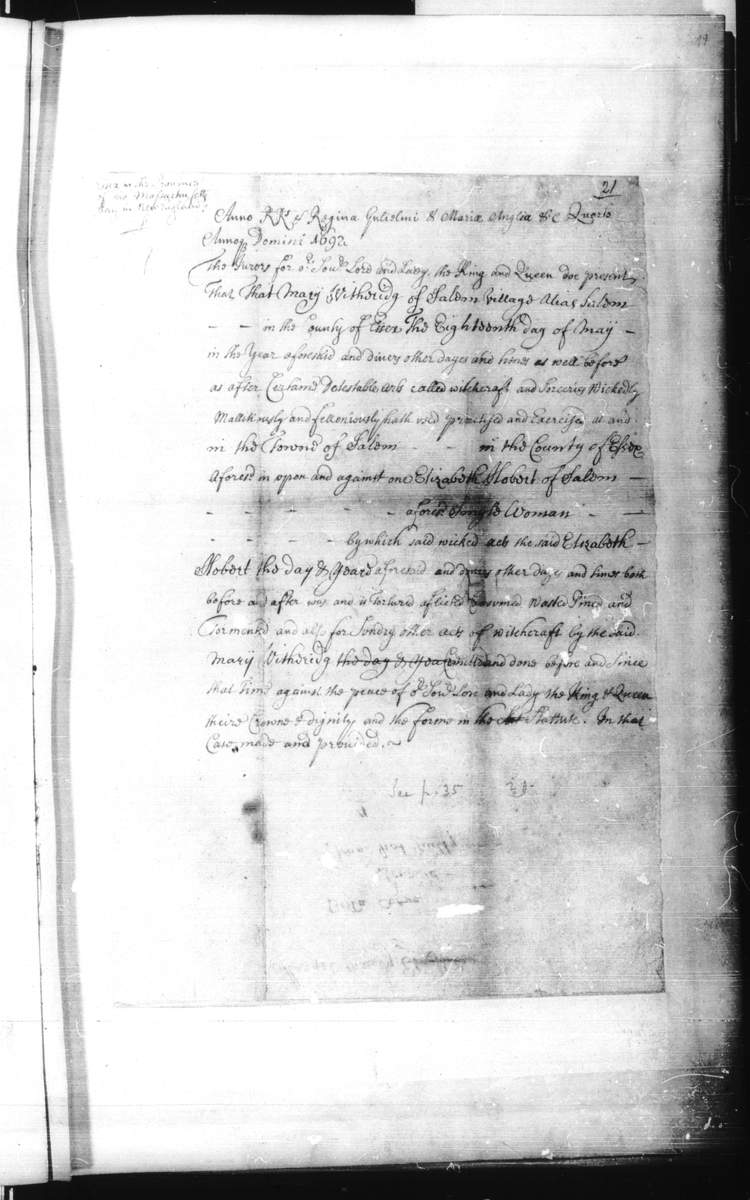 19
21
Essex in the Province
of the Massachusetts
Bay in New England
ss
Anno RRs & Regina Gulielmi & Mariæ Angliæ &c Quarto
Annoq Domini 1692
The Jurors for or Soud Lord and Lady the King and Queen doe present
That That Mary Witheridg of Salem Village Alias Salem
- - in the County of Essex The Eighteenth day of May -
in the Year aforesaid and divers other dayes and times as well before
as after Certaine Detestable Arts called witchcraft and Sorceries Wickedly
Mallitiously and felleniously hath used practised and Exercised at and
in the Towne of Salem - - in the County of Essex
Aforesd in upon and against one Elizabeth Hobert of Salem -
- - - - - aforesd Single Woman - -
- - - - by which said wicked acts the said Elizabeth -
Hobert the day & Yeare aforesaid and divers other dayes and times both
before and after was and is Tortured aflicted Consumed Wasted Pined and
Tormented and also for Sundry other acts of witchcraft by the said
Mary Witheridg the day & Year and done before and Since
that time against the peace of or Soud Lord and Lady the King & Queen
theire Crowne & dignity and the forme in the Stattute. In that
Case made and provided.
See p. 35